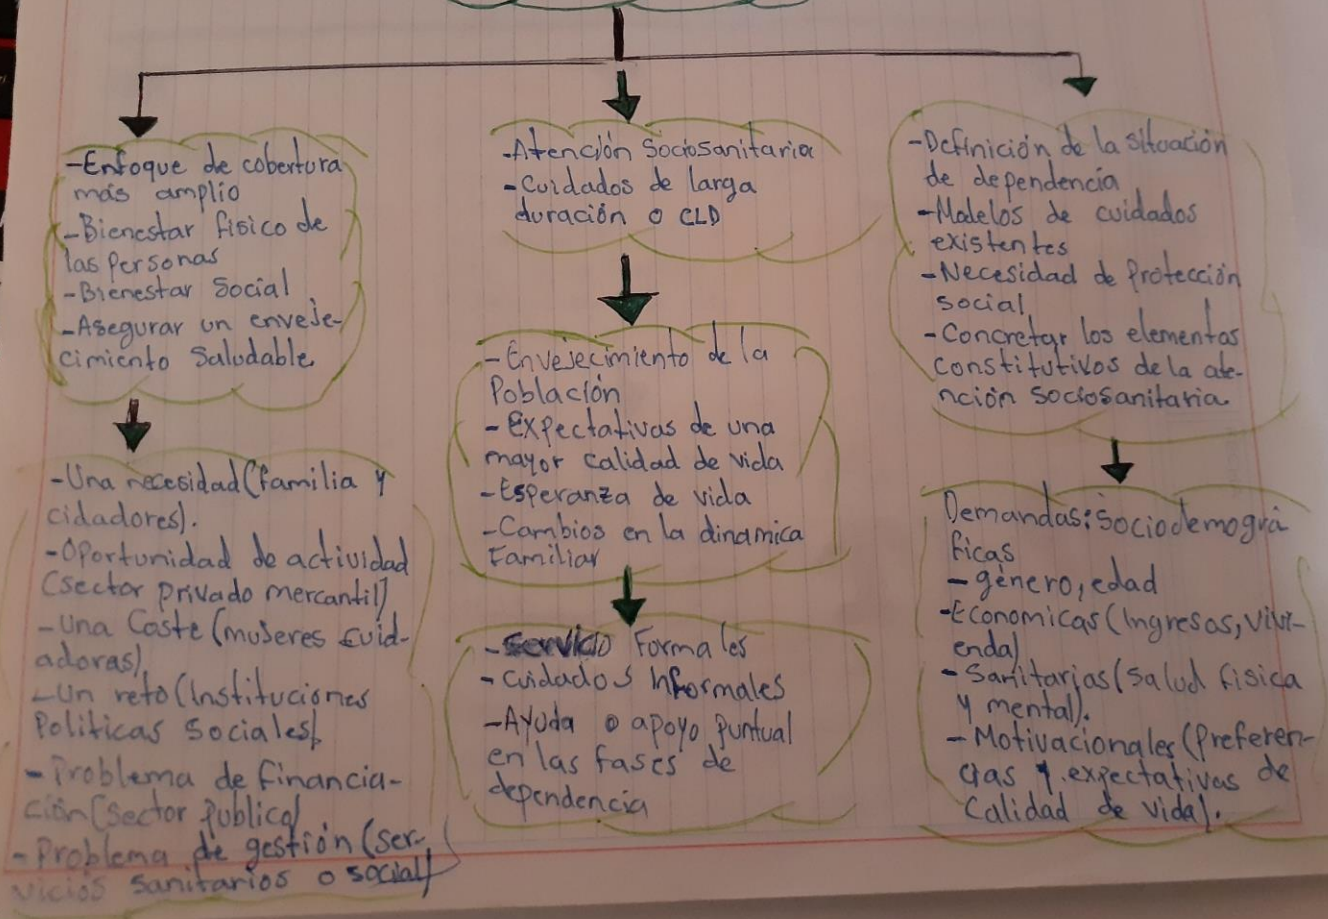 -Enfoque de cobertura
más amplio
-Bienestar fisico de
las Personas
-Bienestar Social
-Asegurar un enveje-
cimiento Saludable
-Una necesidad (familia y
cidadores).
-Oportunidad de actividad
(sector privado mercantil)
-Una Coste (mujeres cuid-
adoras)
-Un reto (Instituciones
Politicas Sociales)
-Problema de financia-
ción (sector Publico)
-Problema de gestión (ser-
vicios sanitarios o social)
-Atención Sociosanitaria
-Cuidados de larga
duración o CLD
-Envejecimiento de la
Población
-Expectativas de una
mayor calidad de vida
-Esperanza de vida
-Cambios en la dinamica
Familiar
-servicio Formales
-cuidados Informales
-Ayuda o apoyo Puntual
en las fases de
dependencia
-Definición de la situación
de dependencia
-Modelos de cuidados
existentes
-Necesidad de Protección
social
-Concretar los elementos
constitutivos de la ate-
nción sociosanitaria.
Demandas: Sociodemográ
ficas
-género, edad
-Economicas (Ingresos, vivi-
enda)
-Sanitarias (salud fisica
y mental).
-Motivacionales (Preferen-
cias y expectativas de
Calidad de vida).